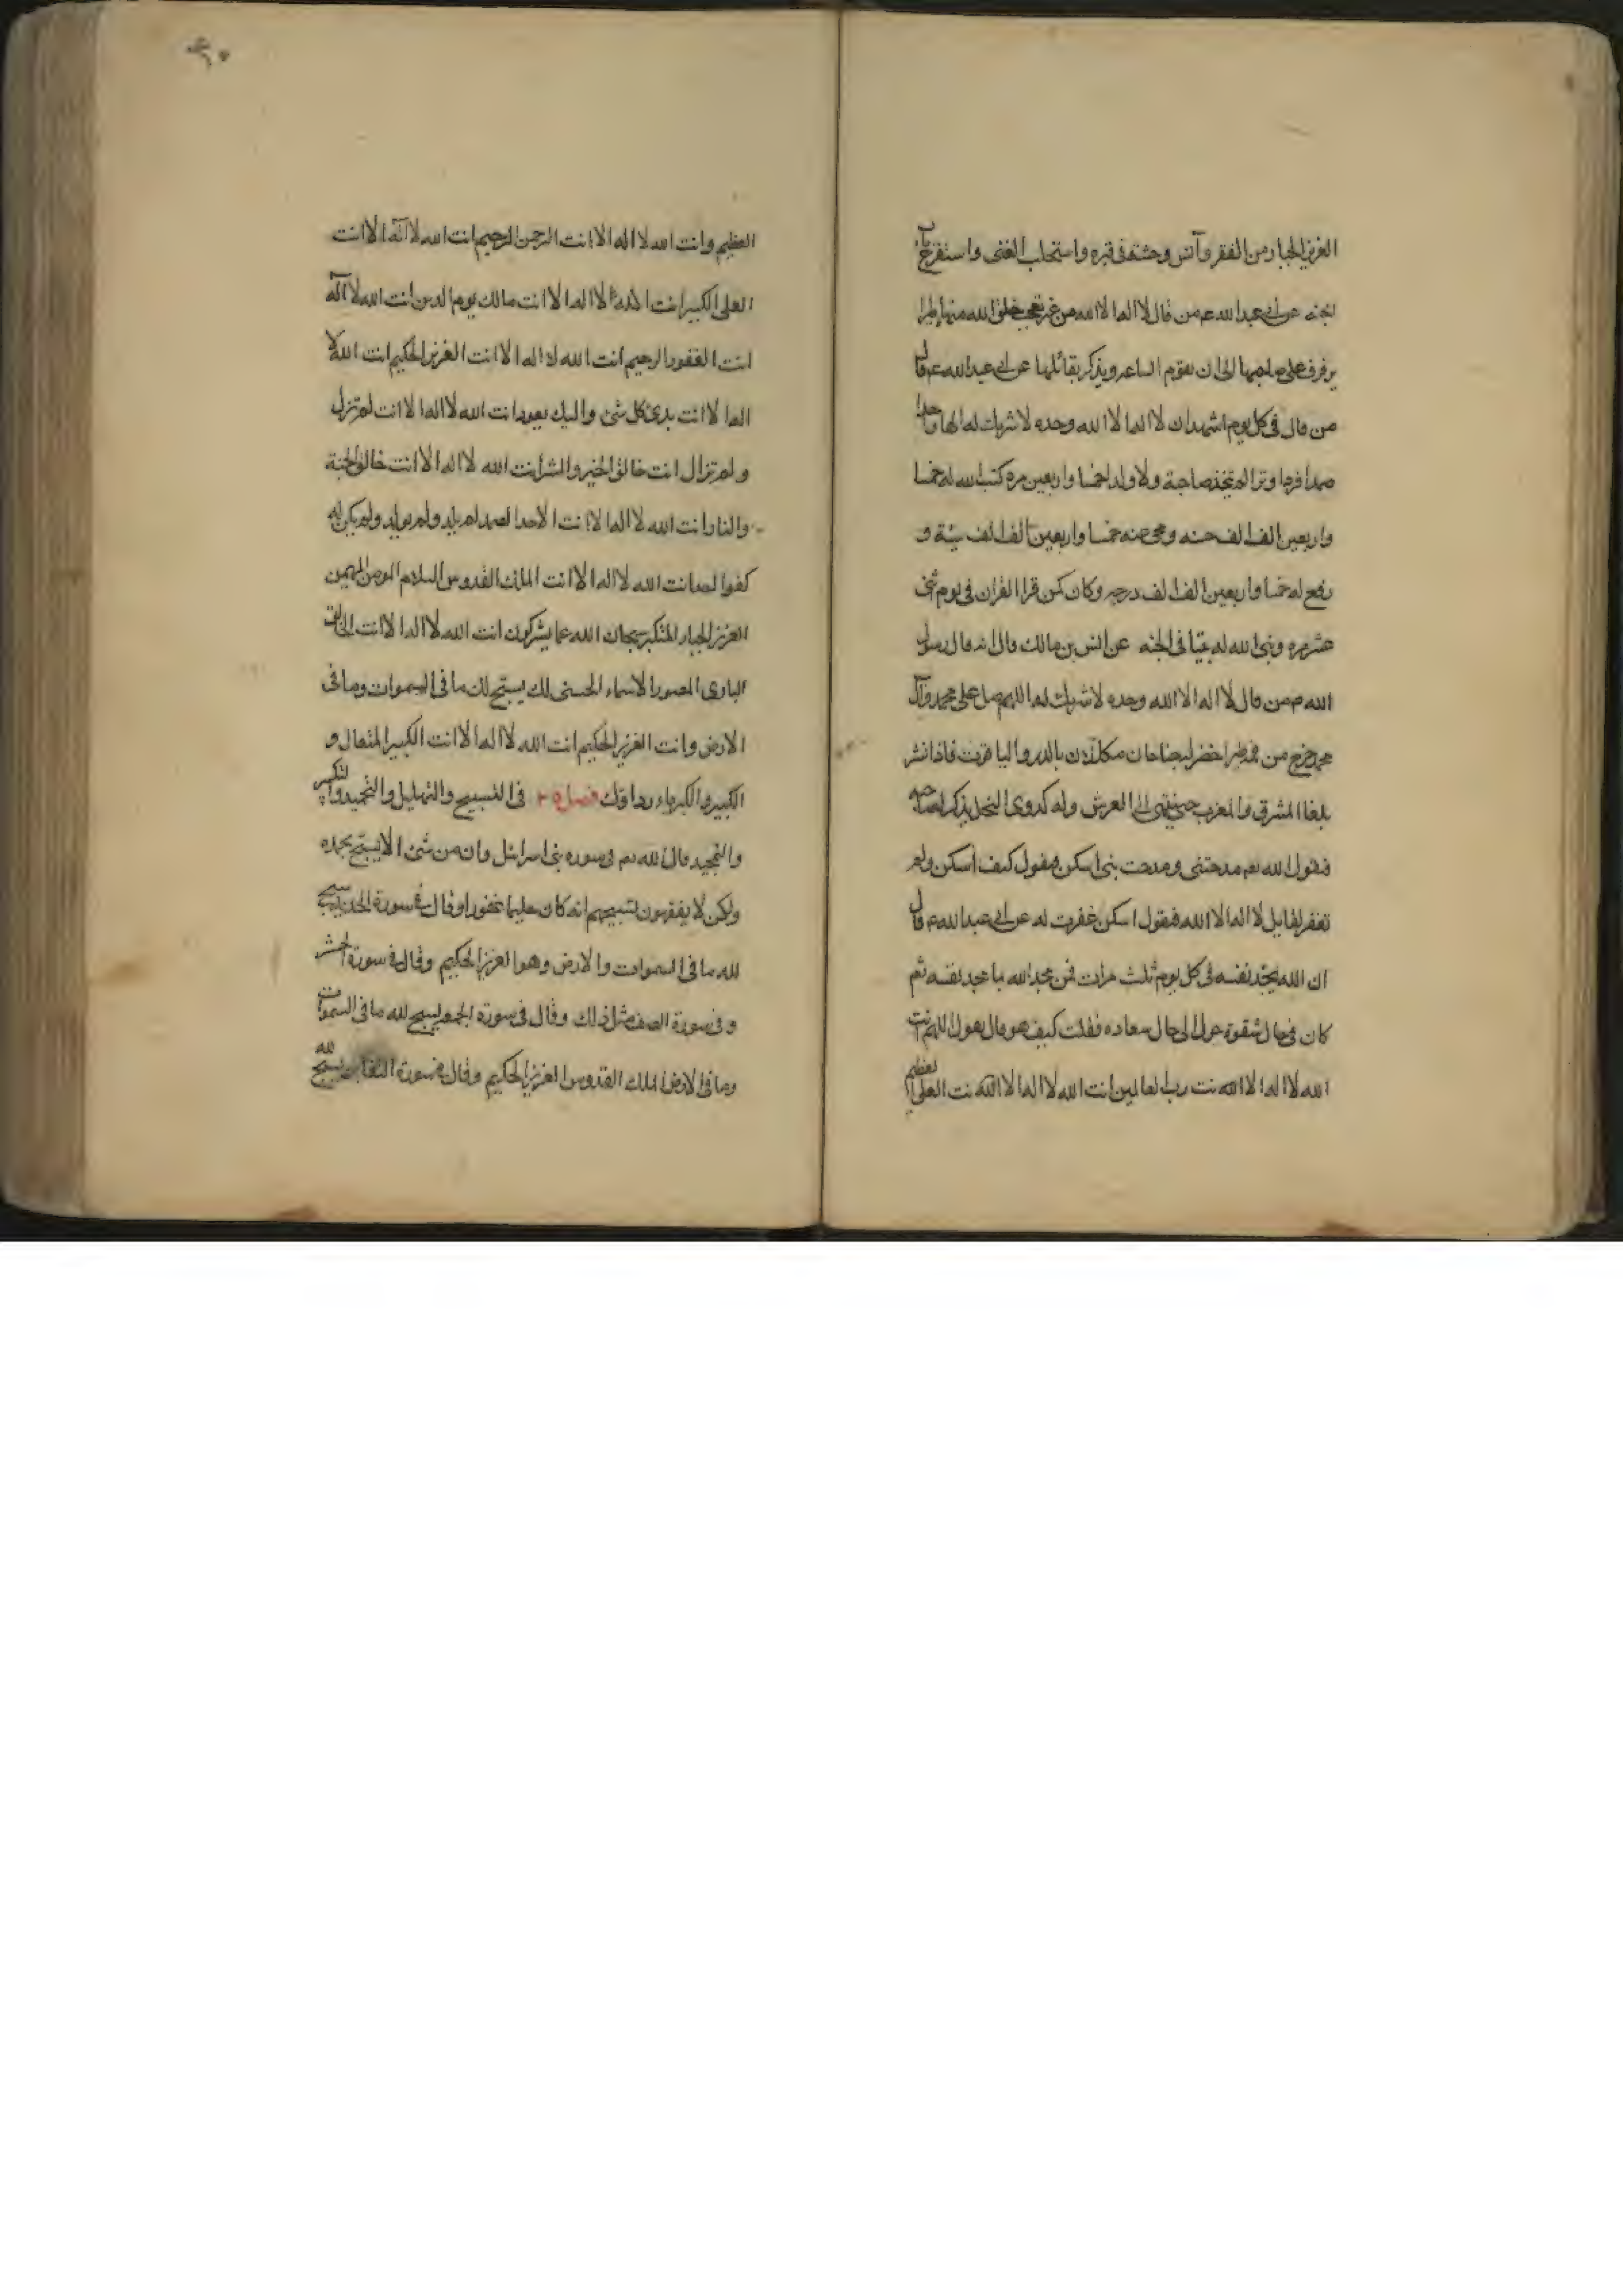 العزيز الجبار من الفقر وآنس وحشته فى قبره واستجلب الغنى واستقرع باب
الجنه عن ابى عبد الله ع م من قال لا اله الا الله من غير تعجب خلق الله منها طيرا
يرفرف على صاحبها الى ان تقوم الساعه ويذكر بقائلها عن ابى عبد الله ع م قال
من قال فى كل يوم اشهد ان لا اله الا الله وحده لا شريك له الها واحدا
صمدا فردا وترا لم يتخذ صاحبة ولا ولدا خمسا واربعين مرة كتب الله له خمسا
واربعين الف الف حسنه ومحى عنه خمسا واربعين الف الف سيئة و
رفع له خمسا واربعين الف الف درجه وكان كمن قرا القران فى يوم اثنى
عشر مره وبنى الله له بيتا فى الجنه عن انس بن مالك قال انه قال رسول
الله ص من قال لا اله الا الله وحده لا شريك له اللهم صل على محمد وآل
محمد خرج من فمه طير اخضر له جناحان مكللان بالدر واليا قوت فاذا نشر
بلغا المشرق والمغرب حتى ينتهى الى العرش وله كدوى النحل يذكر لصاحبه
فيقول الله تعم مدحتنى ومدحت بنى اسكن فيقول كيف اسكن ولم
تغفر لقايل لا اله الا الله فيقول اسكن غفرت له عن ابى عبد الله ع م قال
ان الله يمجد نفسه فى كل يوم ثلث مرات فمن مجد الله بما مجد نفسه ثم
كان فى حال شقوة حول الى حال سعاده فقلت كيف هو قال يقول اللهم انت
الله لا اله الا الله نت رب العالمين انت الله لا اله الا الله نت العلى العظيم
العظيم وانت الله لا اله الا انت الرحمن الرحيم انت الله لا اله الا انت
العلى الكبير انت الله لا اله الا انت مالك يوم الدين انت الله لا اله
انت الغفور الرحيم انت الله لا اله الا انت العزيز الحكيم انت الله لا
اله الا انت بدئ كل شئ واليك يعود انت الله لا اله الا انت لم تزل
ولم تزال انت خالق الخير والشر انت الله لا اله الا انت خالق الجنة
والنار انت الله لا اله الا انت الاحد الصمد لم يلد ولم يولد ولم يكن له
كفوا احد انت الله لا اله الا انت الملك القدوس السلام المومن المهيمن
العزيز الجبار المتكبر سبحان الله عما يشركون انت الله لا اله الا انت الخالق
البارى المصور الاسماء الحسنى لك يسبح لك ما فى السموات وما فى
الارض وانت العزيز الحكيم انت الله لا اله الا انت الكبير المتعال و
الكبير والكبرياء رداوك فصل ٢٥ فى التسبيح والتهليل والتحميد والتكبير
والتمجيد قال الله تعم فى سوره بنى اسرائيل وان من شئ الا يسبح بحمده
ولكن لا يفقهون تسبيحهم انه كان حليما غفورا وقال فى سورة الحديد سبح
لله ما فى السموات والارض وهو العزيز الحكيم وقال فى سورة الحشر
وفى سورة الصف مثل ذلك وقال فى سورة الجمعه يسبح لله ما فى السموات
وما فى الارض الملك القدوس العزيز الحكيم وقال فى سورة التغابن يسبح لله